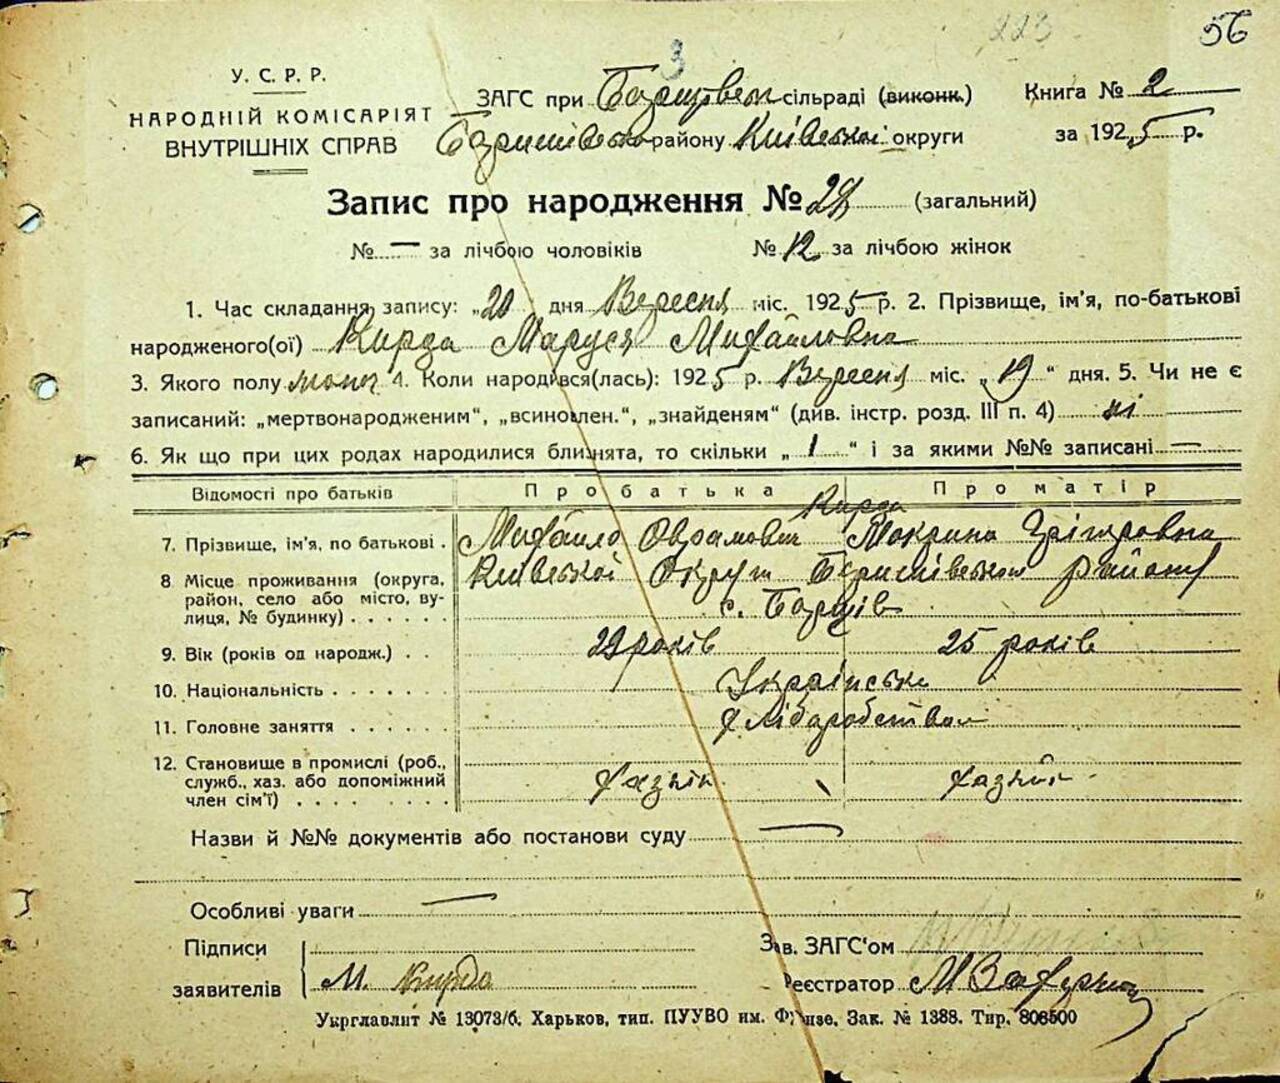 223 56
3
У. С. Р. Р.
НАРОДНІЙ КОМІСАРІЯТ
ВНУТРІШНІХ СПРАВ
ЗАГС при сільраді (виконк.)
Баришівсько району Київської округи
Книга № 2
за 1925 р.
Запис про народження № 28 (загальний)
№ — за лічбою чоловіків № 12 за лічбою жінок
1. Час складання запису: „20 дня Вересня міс. 1925 р. 2. Прізвище, ім'я, по-батькові
народженого(ої) Кирда Маруся Михайловна
3. Якого полу жіноч 4. Коли народився(лась): 1925 р. Вересня міс. „19“ дня. 5. Чи не є
записаний: „мертвонародженим“, „всиновлен.“, „знайденям“ (див. інстр. розд. III п. 4) ні
6. Як що при цих родах народилися близнята, то скільки „1“ і за якими №№ записані —
Відомості про батьків Про батька Про матір
Кирда
7. Прізвище, ім'я, по батькові . Михайло Оврамович Мокрина Григоровна
8 Місце проживання (округа, район, село або місто, вулиця, № будинку) . . . . . . Київської Округи Баришівського району
с. Борщів
9. Вік (років од народж.) . . 29 років 25 років
10. Національність . . . . . . . Українське
11. Головне заняття . . . . . . Хліборобством
12. Становище в промислі (роб., служб., хаз. або допоміжний член сім'ї) . . . . . . . Хазяін Хазяйк
Назви й №№ документів або постанови суду —
Особливі уваги —
Підписи
заявителів М. Кирда
Зав. ЗАГС'ом
Реєстратор М
Укрглавлит № 13073/б. Харьков, тип. ПУУВО им. Фрунзе. Зак. № 1388. Тир. 806500